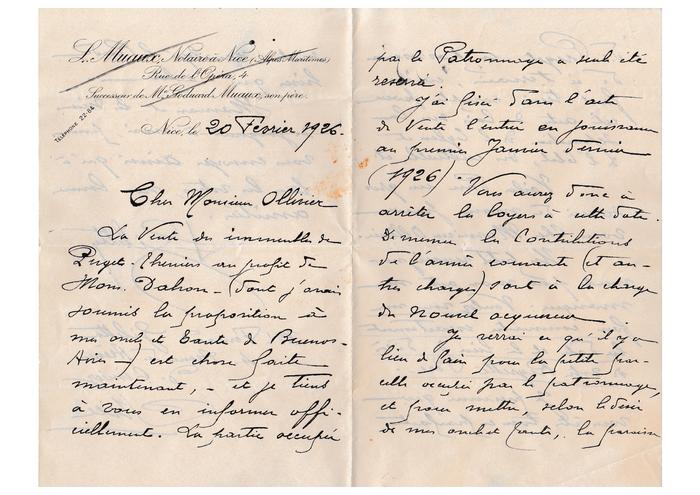 L. Muaux, Notaire à Nice (Alpes Maritimes)
Rue de l'Opéra, 4
Successeur de Me Edouard Muaux, son père
TÉLÉPHONE 22-84
Nice, le 20 Février 1926.
Cher Monsieur Ollivier
La Vente des immeubles de
Puget-Théniers au profit de
Mons. Dahon - (dont j'avais
soumis la proposition à
mes oncle et tante de Buenos-
Aires -) est chose faite
maintenant, - et je tiens
à vous en informer offi-
ciellement. La partie occupée
par le Patronnage a seule été
réservée.
J'ai fixé dans l'acte
de Vente l'entrée en jouissance
au premier Janvier dernier
(1926). Vous aurez donc à
arrêter les loyers à cette date.
De même les Contributions
de l'année courante (et au-
tres charges) sont à la charge
du Nouvel acquéreur
Je verrai ce qu'il y a
lieu de faire pour la petite par-
celle occupée par le patronnage,
et pour mettre, selon le désir
de mes oncle et tante, la